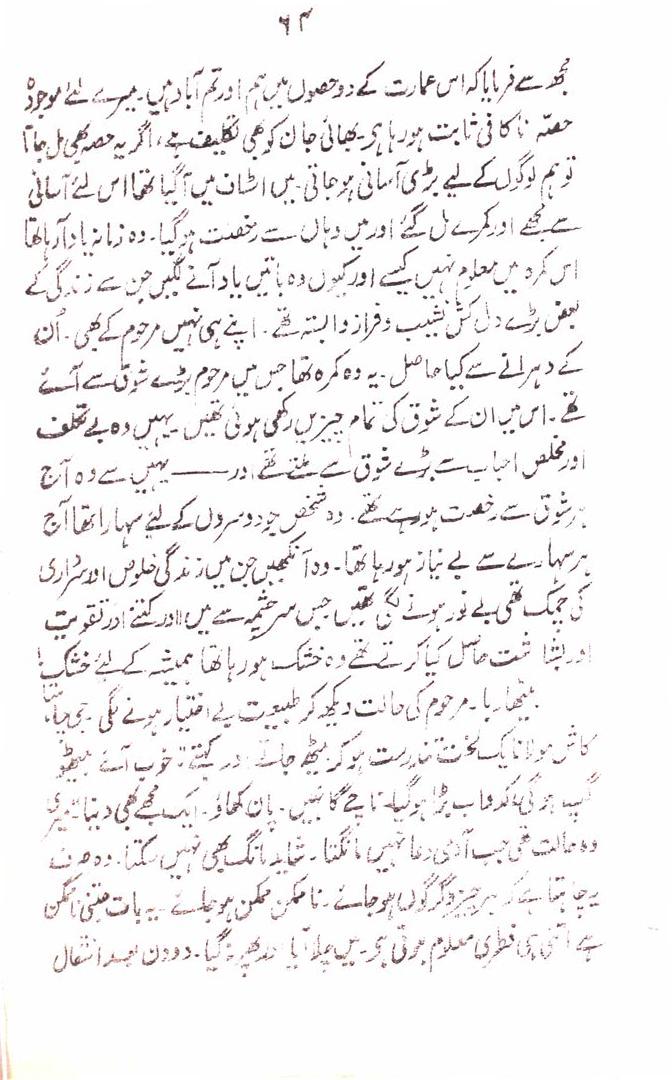 ۶۴
مجھ سے فرمایا کہ اس عمارت کے دو حصوں میں ہم اور تم آباد ہیں۔ میرے لئے موجودہ
حصّہ ناکافی ثابت ہو رہا ہی۔ بھائی جان کو بھی تکلیف ہے، اگر یہ حصہ بھی مل جاتا
تو ہم لوگوں کے لیے بڑی آسانی ہو جاتی۔ میں اسٹاف میں آگیا تھا اس لئے آسانی
سے مجھے اور کمرے مل گئے اور میں وہاں سے رخصت ہوگیا۔ وہ زمانہ یاد آرہا تھا
اس کمرہ میں معلوم نہیں کیسے اور کیوں وہ باتیں یاد آنے لگیں جن سے زندگی کے
بعض بڑے دل کش نشیب و فراز وابستہ تھے۔ اپنے ہی نہیں مرحوم کے بھی۔ اُن
کے دہرانے سے کیا حاصل۔ یہ وہ کمرہ تھا جس میں مرحوم بڑے شوق سے آئے
تھے۔ اس میں ان کے شوق کی تمام چیزیں رکھی ہوئی تھیں۔ یہیں وہ بے تکلف
اور مخلص احباب سے بڑے شوق سے ملتے تھے اور —— یہیں سے وہ آج
ہر شوق سے رخصت ہو رہے تھے۔ وہ شخص جو دوسروں کے لئے سہارا تھا آج
ہر سہارے سے بے نیاز ہو رہا تھا۔ وہ آنکھیں جن میں زندگی خلوص اور سرداری
کی چمک تھی بے نور ہونے لگی تھیں جس سرچشمہ سے میں اور کتنے اور تقویت
اور بشاشت حاصل کیا کرتے تھے وہ خشک ہو رہا تھا ہمیشہ کے لئے خشک!
بیٹھا رہا۔ مرحوم کی حالت دیکھ کر طبیعت بے اختیار ہونے لگی۔ جی چاہتا
کاش مولانا یک لخت تندرست ہو کر بیٹھ جاتے اور کہتے، خوب آئے بیٹھو
گپ ہوگی، بڑا ہوگیا۔ ناچے گا نہیں۔ پان کھاؤ۔ ایک مجھے بھی دینا۔ میری
وہ حالت تھی جب آدمی دعا نہیں مانگتا۔ شاید مانگ بھی نہیں سکتا۔ وہ صرف
یہ چاہتا ہے کہ ہر چیز دگرگوں ہو جائے۔ ناممکن ممکن ہو جائے۔ یہ بات جتنی ناممکن
ہے اتنی ہی فطری معلوم ہوتی ہی۔ میں چلا آیا پھر نہ گیا۔ دو دن بعد انتقال